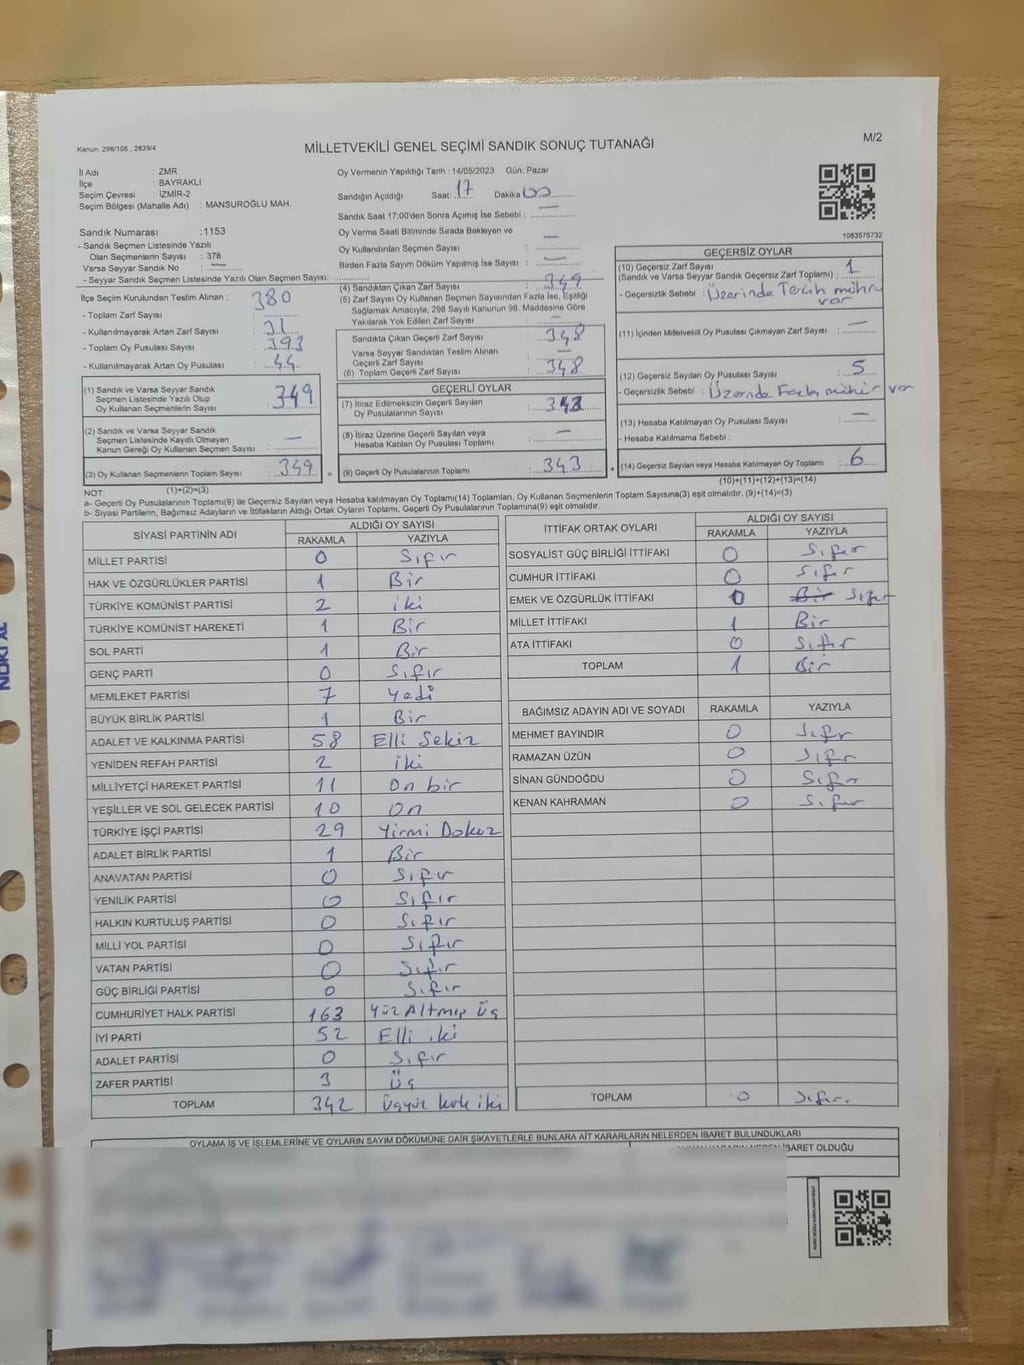 Kanun: 298/105 , 2839/4
MİLLETVEKİLİ GENEL SEÇİMİ SANDIK SONUÇ TUTANAĞI
M/2
İl Adı : ZMR
İlçe : BAYRAKLI
Seçim Çevresi : İZMİR-2
Seçim Bölgesi (Mahalle Adı) : MANSUROĞLU MAH.
Sandık Numarası :1153
- Sandık Seçmen Listesinde Yazılı
Olan Seçmenlerin Sayısı : 378
Varsa Seyyar Sandık No : —
- Seyyar Sandık Seçmen Listesinde Yazılı Olan Seçmen Sayısı:
Oy Vermenin Yapıldığı Tarih : 14/05/2023 Gün: Pazar
Sandığın Açıldığı Saat: 17 Dakika 00
Sandık Saat 17:00'den Sonra Açımış İse Sebebi : —
Oy Verme Saati Bitiminde Sırada Bekleyen ve
Oy Kullandırılan Seçmen Sayısı : —
Birden Fazla Sayım Döküm Yapılmış İse Sayısı : —
1083575732
İlçe Seçim Kurulundan Teslim Alınan :
- Toplam Zarf Sayısı : 380
- Kullanılmayarak Artan Zarf Sayısı : 31
- Toplam Oy Pusulası Sayısı : 393
- Kullanılmayarak Artan Oy Pusulası : 44
(1) Sandık ve Varsa Seyyar Sandık
Seçmen Listesinde Yazılı Olup
Oy Kullanan Seçmenlerin Sayısı : 349
(2) Sandık ve Varsa Seyyar Sandık
Seçmen Listesinde Kayıtlı Olmayan
Kanun Gereği Oy Kullanan Seçmen Sayısı : —
(3) Oy Kullanan Seçmenlerin Toplam Sayısı : 349
(1)+(2)=(3)
(4) Sandıktan Çıkan Zarf Sayısı : 349
(5) Zarf Sayısı Oy Kullanan Seçmen Sayısından Fazla İse, Eşitliği
Sağlamak Amacıyla, 298 Sayılı Kanunun 98. Maddesine Göre
Yakılarak Yok Edilen Zarf Sayısı : —
Sandıkta Çıkan Geçerli Zarf Sayısı : 348
Varsa Seyyar Sandıktan Teslim Alınan
Geçerli Zarf Sayısı : —
(6) Toplam Geçerli Zarf Sayısı : 348
GEÇERLİ OYLAR
(7) İtiraz Edilmeksizin Geçerli Sayılan
Oy Pusulalarının Sayısı : 343
(8) İtiraz Üzerine Geçerli Sayılan veya
Hesaba Katılan Oy Pusulası Toplamı : —
= (9) Geçerli Oy Pusulalarının Toplamı : 343 +
GEÇERSİZ OYLAR
(10) Geçersiz Zarf Sayısı
(Sandık ve Varsa Seyyar Sandık Geçersiz Zarf Toplamı) : 1
- Geçersizlik Sebebi : Üzerinde Tercih mührü
var
(11) İçinden Milletvekili Oy Pusulası Çıkmayan Zarf Sayısı : —
(12) Geçersiz Sayılan Oy Pusulası Sayısı : 5
- Geçersizlik Sebebi : Üzerinde Fazla mühür var
(13) Hesaba Katılmayan Oy Pusulası Sayısı : —
- Hesaba Katılmama Sebebi :
(14) Geçersiz Sayılan veya Hesaba Katılmayan Oy Toplamı : 6
(10)+(11)+(12)+(13)=(14)
NOT:
a- Geçerli Oy Pusulalarının Toplamı(9) ile Geçersiz Sayılan veya Hesaba katılmayan Oy Toplamı(14) Toplamları, Oy Kullanan Seçmenlerin Toplam Sayısına(3) eşit olmalıdır. (9)+(14)=(3)
b- Siyasi Partilerin, Bağımsız Adayların ve İttifakların Aldığı Ortak Oyların Toplamı, Geçerli Oy Pusulalarının Toplamına(9) eşit olmalıdır.
SİYASİ PARTİNİN ADI ALDIĞI OY SAYISI
RAKAMLA YAZIYLA
MİLLET PARTİSİ 0 Sıfır
HAK VE ÖZGÜRLÜKLER PARTİSİ 1 Bir
TÜRKİYE KOMÜNİST PARTİSİ 2 iki
TÜRKİYE KOMÜNİST HAREKETİ 1 Bir
SOL PARTİ 1 Bir
GENÇ PARTİ 0 Sıfır
MEMLEKET PARTİSİ 7 yedi
BÜYÜK BİRLİK PARTİSİ 1 Bir
ADALET VE KALKINMA PARTİSİ 58 Elli Sekiz
YENİDEN REFAH PARTİSİ 2 iki
MİLLİYETÇİ HAREKET PARTİSİ 11 On bir
YEŞİLLER VE SOL GELECEK PARTİSİ 10 On
TÜRKİYE İŞÇİ PARTİSİ 29 Yirmi Dokuz
ADALET BİRLİK PARTİSİ 1 Bir
ANAVATAN PARTİSİ 0 Sıfır
YENİLİK PARTİSİ 0 Sıfır
HALKIN KURTULUŞ PARTİSİ 0 Sıfır
MİLLİ YOL PARTİSİ 0 Sıfır
VATAN PARTİSİ 0 Sıfır
GÜÇ BİRLİĞİ PARTİSİ 0 Sıfır
CUMHURİYET HALK PARTİSİ 163 Yüz Altmış Üç
İYİ PARTİ 52 Elli iki
ADALET PARTİSİ 0 Sıfır
ZAFER PARTİSİ 3 Üç
TOPLAM 342 Üçyüz kırk iki
İTTİFAK ORTAK OYLARI ALDIĞI OY SAYISI
RAKAMLA YAZIYLA
SOSYALİST GÜÇ BİRLİĞİ İTTİFAKI 0 Sıfır
CUMHUR İTTİFAKI 0 Sıfır
EMEK VE ÖZGÜRLÜK İTTİFAKI 0 Bir Sıfır
MİLLET İTTİFAKI 1 Bir
ATA İTTİFAKI 0 Sıfır
TOPLAM 1 Bir
BAĞIMSIZ ADAYIN ADI VE SOYADI RAKAMLA YAZIYLA
MEHMET BAYINDIR 0 Sıfır
RAMAZAN ÜZÜN 0 Sıfır
SİNAN GÜNDOĞDU 0 Sıfır
KENAN KAHRAMAN 0 Sıfır
TOPLAM 0 Sıfır.
OYLAMA İŞ VE İŞLEMLERİNE VE OYLARIN SAYIM DÖKÜMÜNE DAİR ŞİKAYETLERLE BUNLARA AİT KARARLARIN NELERDEN İBARET BULUNDUKLARI
İBARET OLDUĞU